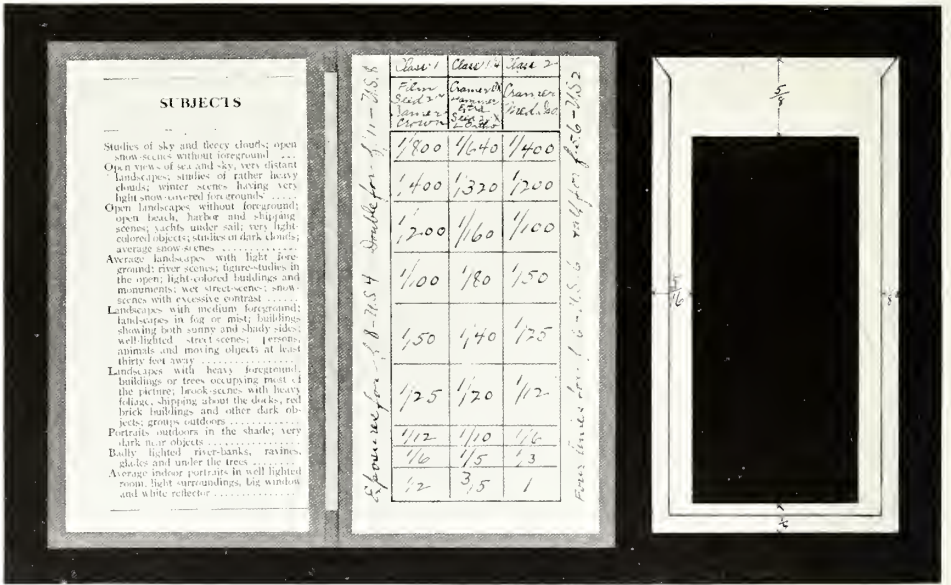 SUBJECTS
Studies of sky and fleecy clouds; open
snow-scenes without foreground ...
Open views of sea and sky, very distant
landscapes; studies of rather heavy
clouds; winter scenes having very
light snow-covered foregrounds .....
Open landscapes without foreground;
open beach, harbor and shipping
scenes; yachts under sail; very light-
colored objects; studies of dark clouds;
average snow-scenes ..............
Average landscapes with light fore-
ground; river scenes; figure-studies in
the open; light-colored buildings and
monuments; wet street-scenes; snow-
scenes with excessive contrast ......
Landscapes with medium foreground;
landscapes in fog or mist; buildings
showing both sunny and shady sides;
well-lighted street-scenes; persons,
animals and moving objects at least
thirty feet away ..................
Landscapes with heavy foreground,
buildings or trees occupying most of
the picture; brook-scenes with heavy
foliage, shipping about the docks, red
brick buildings and other dark ob-
jects; groups outdoors .............
Portraits outdoors in the shade; very
dark near objects ................
Badly lighted river-banks, ravines,
glades and under the trees ........
Average indoor portraits in well lighted
room, light surroundings, big window
and white reflector ................
Exposures for f.8-U.S 4 Double for f.11-U.S.8
Class 1 Class 1¼ Class 2
Film Cramer Cramer
Seed Hammer Med. Iso.
Crown Ortho
1/800 1/640 1/400
1/400 1/320 1/200
1/200 1/160 1/100
1/100 1/80 1/50
1/50 1/40 1/25
1/25 1/20 1/12
1/12 1/10 1/6
1/6 1/5 1/3
1/2 3/5 1
Four times for U.S 6 half for f.5.6-U.S 2
5/8
5/16